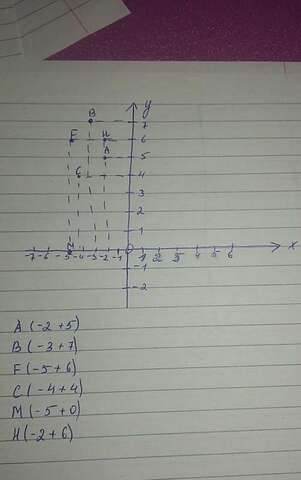 y
B 7
F H 6
A 5
C 4
3
2
1
M 0 x
-7 -6 -5 -4 -3 -2 -1 1 2 3 4 5 6
-1
-2
A (-2 +5)
B (-3 +7)
F (-5 +6)
C (-4 +4)
M (-5 +0)
H (-2 +6)